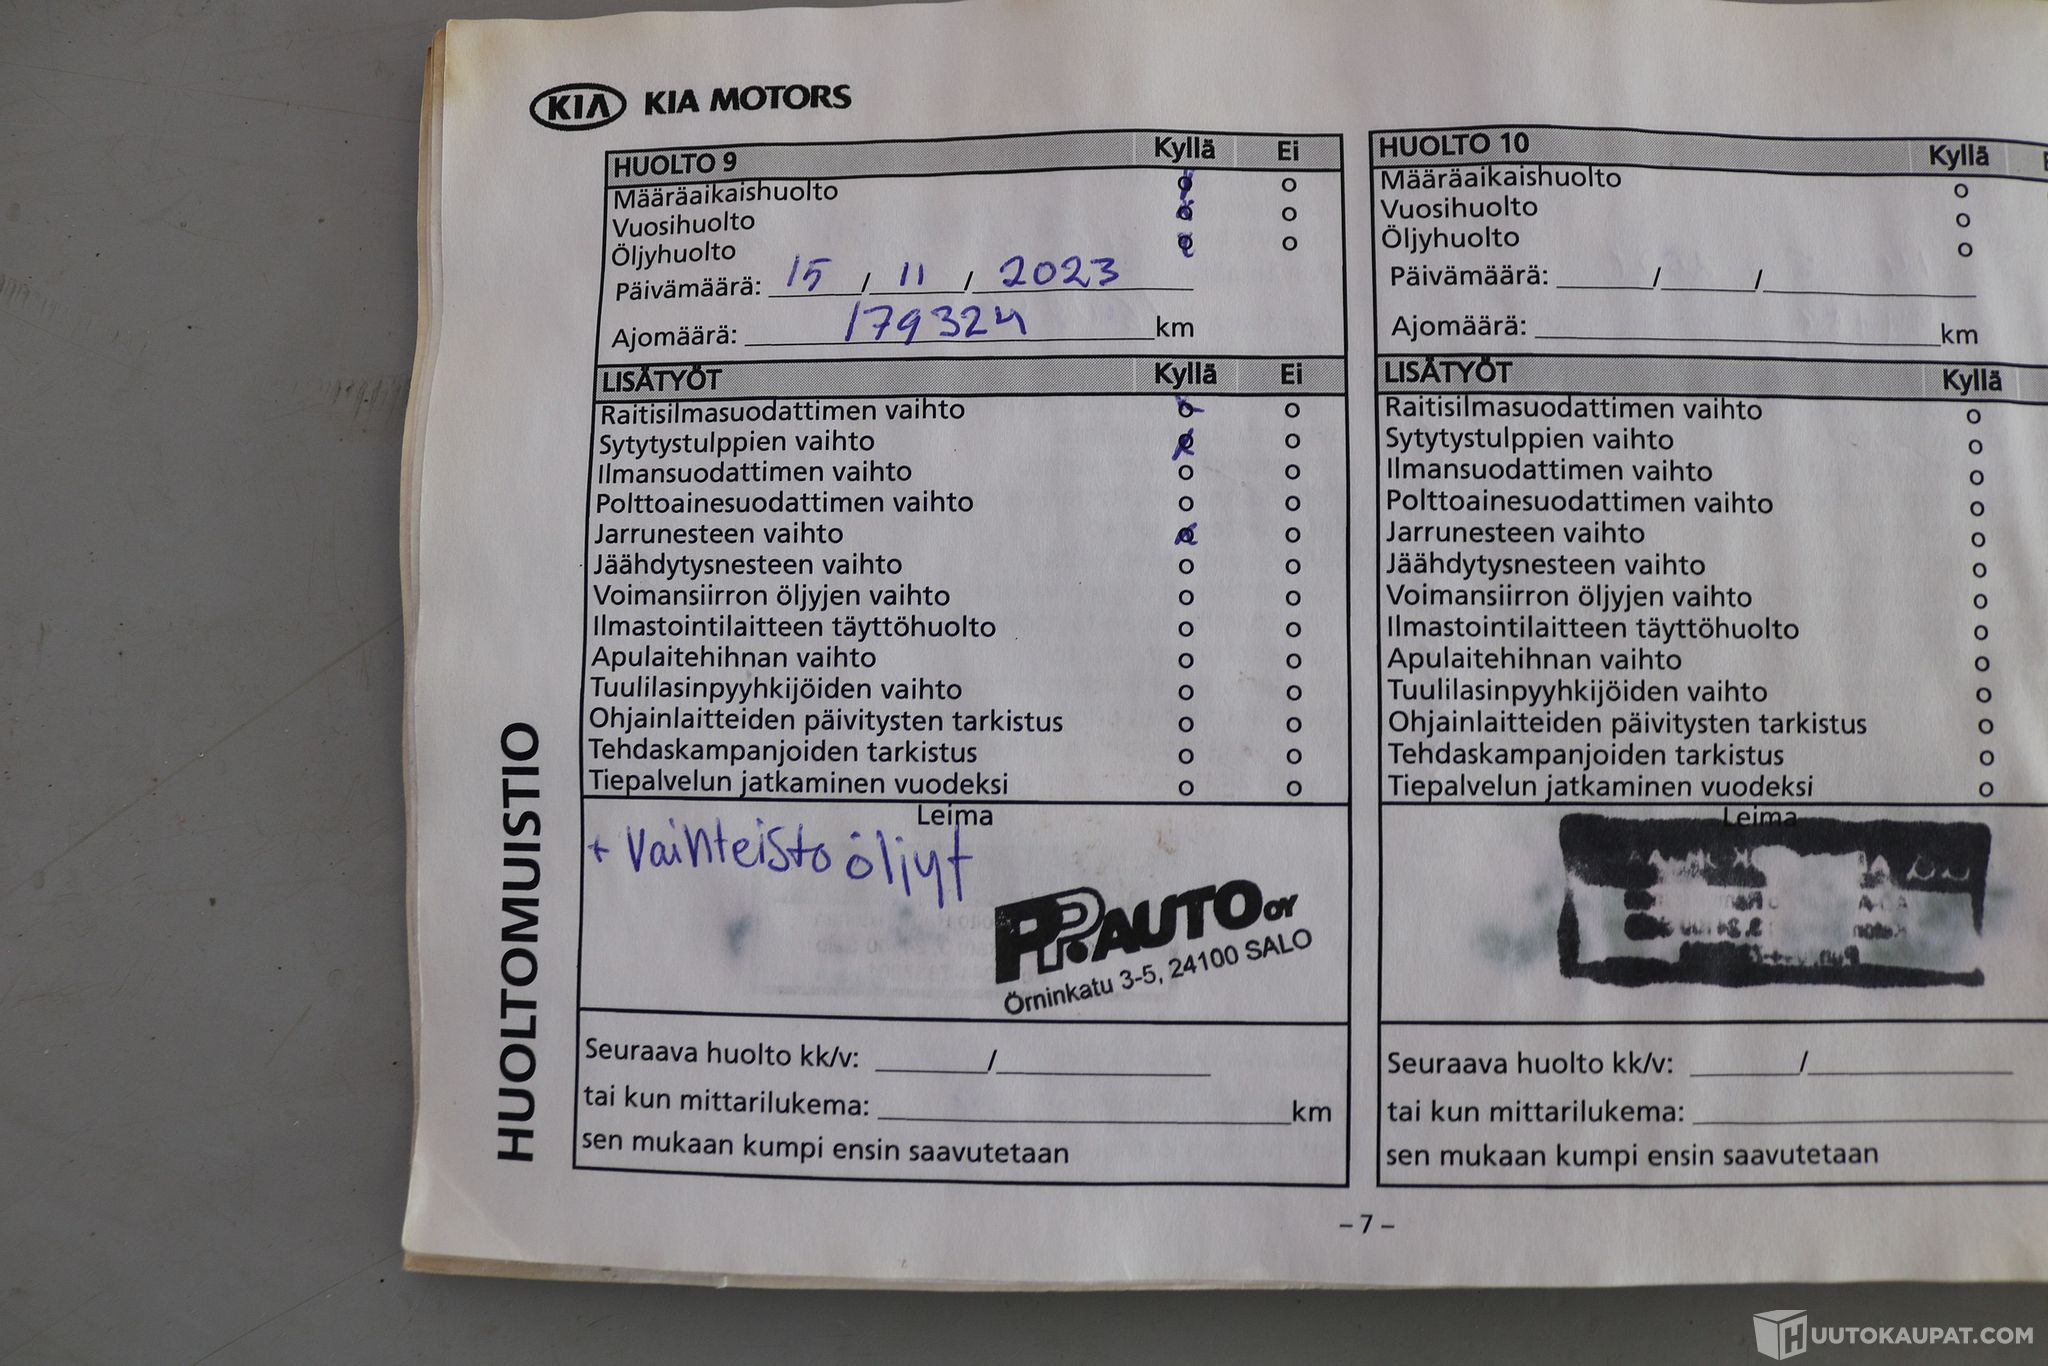 KIA KIA MOTORS
HUOLTO 9 Kyllä Ei
Määräaikaishuolto o o
Vuosihuolto o o
Öljyhuolto o o
Päivämäärä: 15 / 11 / 2023
Ajomäärä: 179324 km
LISÄTYÖT Kyllä Ei
Raitisilmasuodattimen vaihto o o
Sytytystulppien vaihto o o
Ilmansuodattimen vaihto o o
Polttoainesuodattimen vaihto o o
Jarrunesteen vaihto o o
Jäähdytysnesteen vaihto o o
Voimansiirron öljyjen vaihto o o
Ilmastointilaitteen täyttöhuolto o o
Apulaitehihnan vaihto o o
Tuulilasinpyyhkijöiden vaihto o o
Ohjainlaitteiden päivitysten tarkistus o o
Tehdaskampanjoiden tarkistus o o
Tiepalvelun jatkaminen vuodeksi o o
Leima
+ Vaihteisto öljyt
PP.AUTO OY
Örninkatu 3-5, 24100 SALO
Seuraava huolto kk/v: /
tai kun mittarilukema: km
sen mukaan kumpi ensin saavutetaan
HUOLTO 10 Kyllä
Määräaikaishuolto o
Vuosihuolto o
Öljyhuolto o
Päivämäärä: / /
Ajomäärä: km
LISÄTYÖT Kyllä
Raitisilmasuodattimen vaihto o
Sytytystulppien vaihto o
Ilmansuodattimen vaihto o
Polttoainesuodattimen vaihto o
Jarrunesteen vaihto o
Jäähdytysnesteen vaihto o
Voimansiirron öljyjen vaihto o
Ilmastointilaitteen täyttöhuolto o
Apulaitehihnan vaihto o
Tuulilasinpyyhkijöiden vaihto o
Ohjainlaitteiden päivitysten tarkistus o
Tehdaskampanjoiden tarkistus o
Tiepalvelun jatkaminen vuodeksi o
Leima
Seuraava huolto kk/v: /
tai kun mittarilukema:
sen mukaan kumpi ensin saavutetaan
HUOLTOMUISTIO
– 7 –
HUUTOKAUPAT.COM